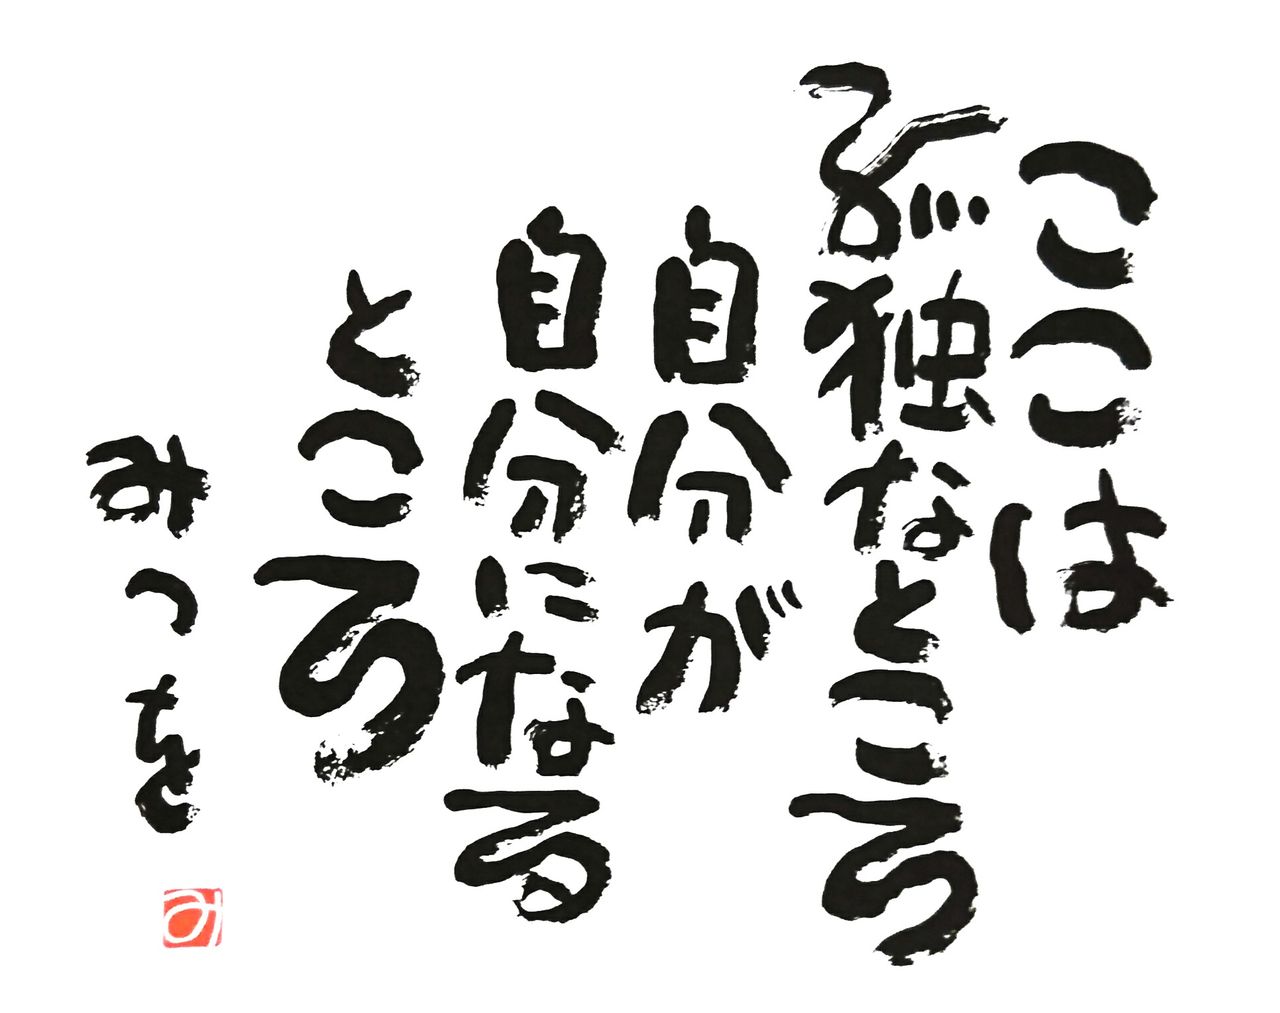 ここは
孤独なところ
自分が
自分になる
ところ
みつを
み